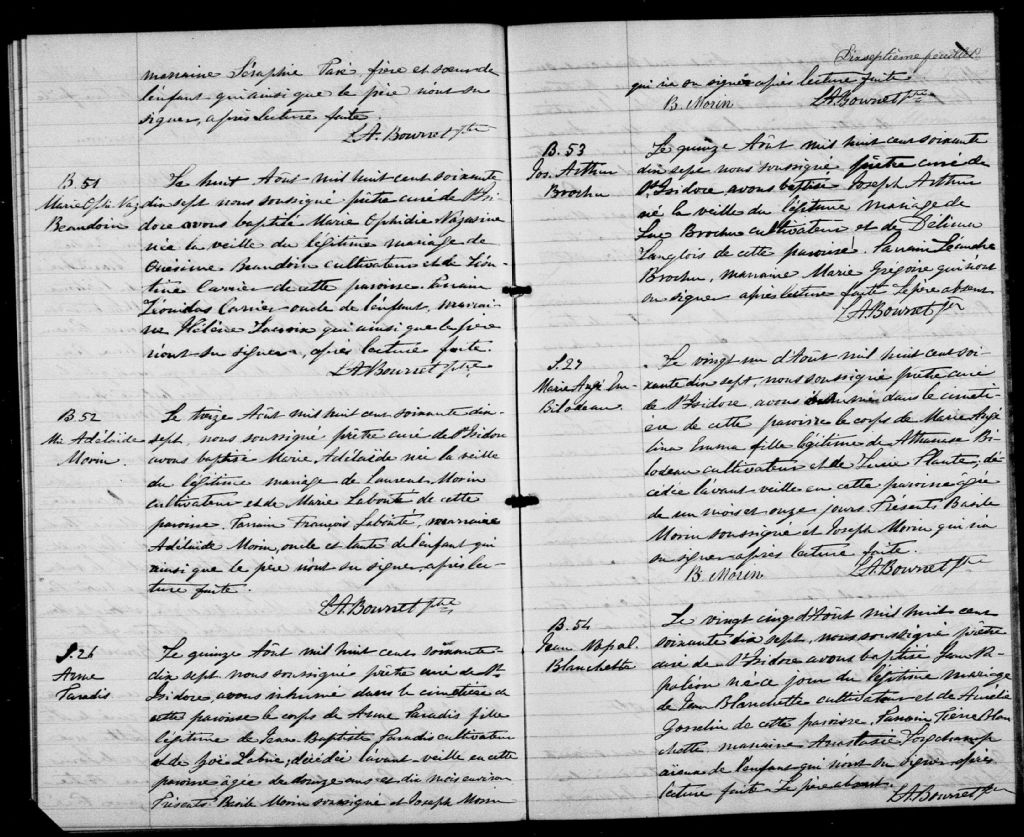 marraine Séraphie Paré, frère et sœur de
l'enfant qui ainsi que le père n'ont su
signer, après lecture faite.
L.A. Bournet ptre
B. 51
Marie Oph. Naz
Beaudoin
Le huit Août mil huit cent soixante
dix sept nous soussigné prêtre curé de St Isi-
dore avons baptisé Marie Ophidie Nazarine
née la veille du légitime mariage de
Onésime Beaudoin cultivateur et de Léon-
tine Carrier de cette paroisse. Parrain
Léonidas Carrier oncle de l'enfant, marrai-
ne, Hélène Lacroix qui ainsi que le père
n'ont su signer, après lecture faite.
L.A. Bournet ptre
B. 52
M. Adélaïde
Morin.
Le treize Août mil huit cent soixante dix-
sept, nous soussigné prêtre curé de St Isidore
avons baptisé Marie Adélaïde née la veille
du légitime mariage de Laurent Morin
cultivateur et de Marie Labonté de cette
paroisse. Parrain François Labonté, marraine
Adélaïde Morin, oncle et tante de l'enfant qui
ainsi que le père n'ont su signer, après lec-
ture faite.
L.A. Bournet ptre
S. 26
Anne
Paradis
Le quinze Août mil huit cent soixante-
dix sept nous soussigné prêtre curé de St
Isidore, avons inhumé dans le cimetière de
cette paroisse le corps de Anne Paradis fille
légitime de Jean-Baptiste Paradis cultivateur
et de Zoé Labrie, décédée l'avant-veille en cette
paroisse âgée de douze ans et dix mois environ
Présents Basile Morin soussigné et Joseph Morin
Dixseptième feuillet
qui n'a su signer après lecture faite
B. Morin L.A. Bournet ptre
B. 53
Jos. Arthur
Brochu
Le quinze Août mil huit cent soixante
dix sept nous soussigné prêtre curé de
St Isidore, avons baptisé Joseph Arthur
né la veille du légitime mariage de
Luc Brochu cultivateur et de Délima
Langlois de cette paroisse. Parrain Léandre
Brochu, marraine Marie Grégoire qui n'ont
su signer après lecture faite. Le père absent
L.A. Bournet ptre
S. 27
Marie Angé. Em
Bilodeau
Le vingt un d'Août mil huit cent soi-
xante dix sept, nous soussigné prêtre curé
de St Isidore, avons inhumé dans le cimeti-
ère de cette paroisse le corps de Marie Angé
lina Emma fille légitime de Athanase Bi-
lodeau cultivateur et de Lucie Plante, dé-
cédée l'avant veille en cette paroisse âgée
de un mois et onze jours. Présents Basile
Morin soussigné et Joseph Morin qui n'a
su signer après lecture faite.
B. Morin L.A. Bournet ptre
B. 54
Jean Napol.
Blanchette
Le vingt cinq d'Août mil huit cent
soixante dix sept, nous soussigné prêtre
curé de St Isidore avons baptisé Jean Na-
poléon né ce jour du légitime mariage
de Jean Blanchette cultivateur et de Aurélie
Gosselin de cette paroisse. Parrain, Blan
chette marraine Anastasie
aïeux de l'enfant qui n'ont su signer après
lecture faite Le père absent.
L.A. Bournet ptre